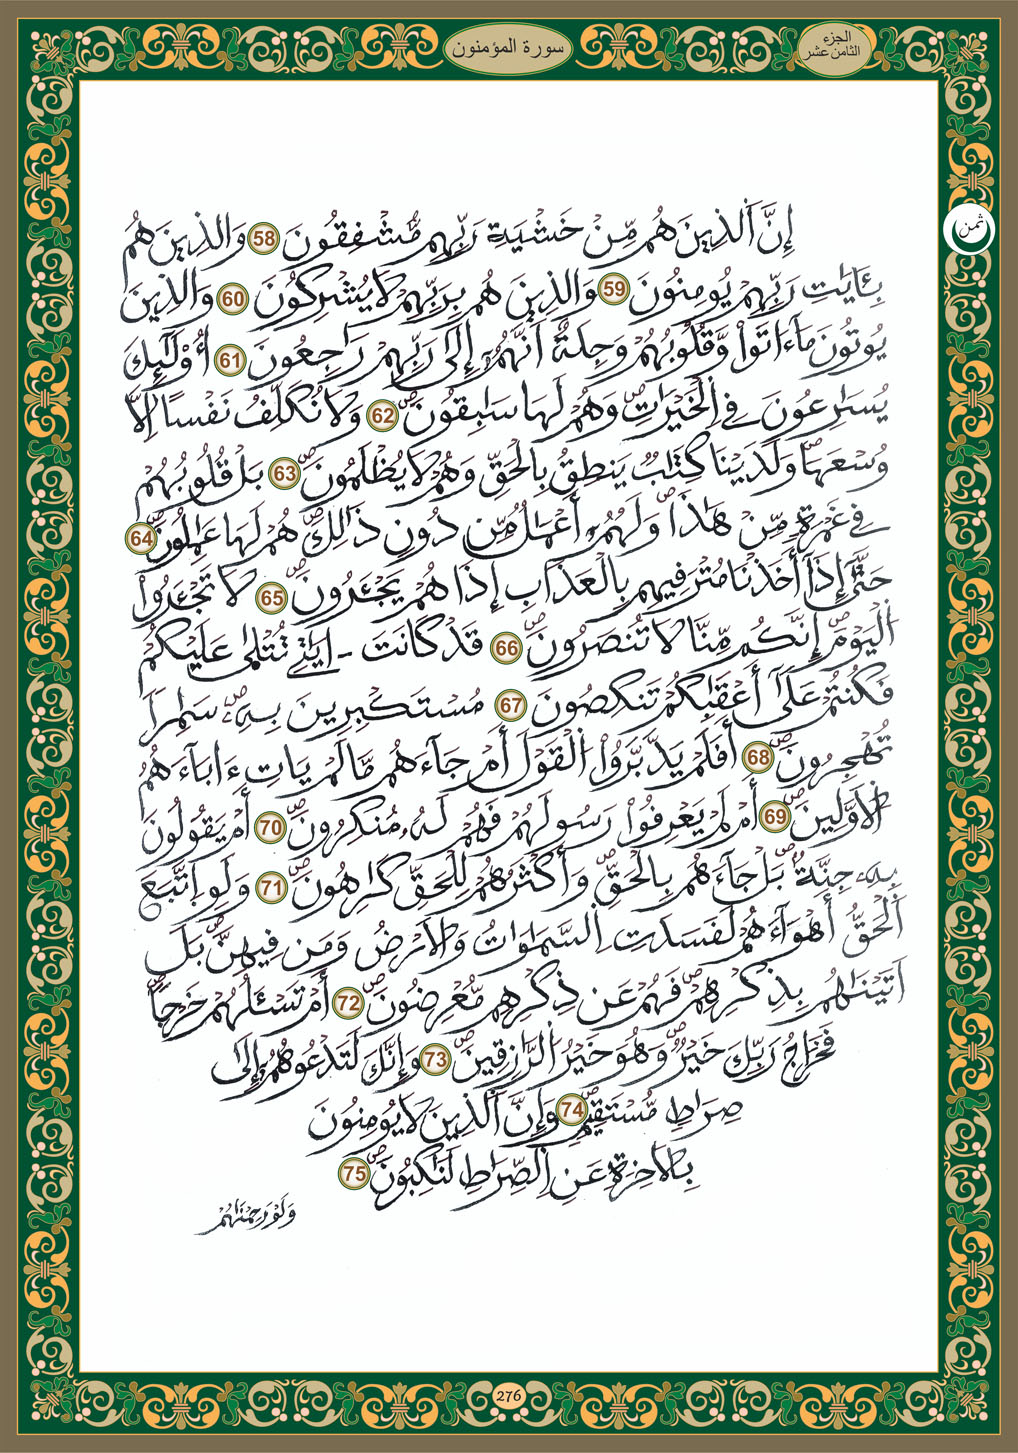 سورة المؤمنون
الجزء
الثامن عشر
ثمن
إِنَّ ٱلذِينَ هُم مِّنْ خَشْيَةِ رَبِّهِم مُّشْفِقُونَ 58 وَالذِينَ هُم
بِـَٔايَٰتِ رَبِّهِمْ يُومِنُونَ 59 وَالذِينَ هُم بِرَبِّهِمْ لَا يُشْرِكُونَ 60 وَالذِينَ
يُوتُونَ مَآ ءَاتَواْ وَّقُلُوبُهُمْ وَجِلَةٌ اَنَّهُمُۥٓ إِلَىٰ رَبِّهِمْ رَاجِعُونَ 61 أُوْلَٰٓئِكَ
يُسَٰرِعُونَ فِے اِ۬لْخَيْرَٰتِ وَهُمْ لَهَا سَٰبِقُونَ 62 وَلَا نُكَلِّفُ نَفْساً اِلَّا
وُسْعَهَا وَلَدَيْنَا كِتَٰبٌ يَنطِقُ بِالْحَقِّ وَهُمْ لَا يُظْلَمُونَ 63 بَلْ قُلُوبُهُمْ
فِے غَمْرَةٍ مِّنْ هَٰذَا وَلَهُمُۥٓ أَعْمَٰلٌ مِّن دُونِ ذَٰلِكَ هُمْ لَهَا عَٰمِلُونَ 64
حَتَّىٰٓ إِذَآ أَخَذْنَا مُتْرَفِيهِم بِالْعَذَابِ إِذَا هُمْ يَجْـَٔرُونَ 65 لَا تَجْـَٔرُواْ
اُ۬لْيَوْمَ إِنَّكُم مِّنَّا لَا تُنصَرُونَ 66 قَدْ كَانَتَ ـ ايَٰتِے تُتْلَىٰ عَلَيْكُمْ
فَكُنتُمْ عَلَىٰٓ أَعْقَٰبِكُمْ تَنكِصُونَ 67 مُسْتَكْبِرِينَ بِهِۦ سَٰمِراً
تُهْجِرُونَ 68 أَفَلَمْ يَدَّبَّرُواْ اُ۬لْقَوْلَ أَمْ جَآءَهُم مَّا لَمْ يَاتِ ءَابَآءَهُمُ
اُ۬لَاوَّلِينَ 69 أَمْ لَمْ يَعْرِفُواْ رَسُولَهُمْ فَهُمْ لَهُۥ مُنكِرُونَ 70 أَمْ يَقُولُونَ
بِهِۦ جِنَّةٌ بَلْ جَآءَهُم بِالْحَقِّ وَأَكْثَرُهُمْ لِلْحَقِّ كَٰرِهُونَ 71 وَلَوِ اِ۪تَّبَعَ
اَ۬لْحَقُّ أَهْوَآءَهُمْ لَفَسَدَتِ اِ۬لسَّمَٰوَٰتُ وَالَارْضُ وَمَن فِيهِنَّ بَلَ
اَتَيْنَٰهُم بِذِكْرِهِمْ فَهُمْ عَن ذِكْرِهِم مُّعْرِضُونَ 72 أَمْ تَسْـَٔلُهُمْ خَرْجاً
فَخَرَاجُ رَبِّكَ خَيْرٌ وَهُوَ خَيْرُ اُ۬لرَّٰزِقِينَ 73 وَإِنَّكَ لَتَدْعُوهُمُۥٓ إِلَىٰ
صِرَٰطٍ مُّسْتَقِيمٍ 74 وَإِنَّ اَ۬لذِينَ لَا يُومِنُونَ
بِالَاخِرَةِ عَنِ اِ۬لصِّرَٰطِ لَنَٰكِبُونَ 75
وَلَوْ رَحِمْنَٰهُمْ
276